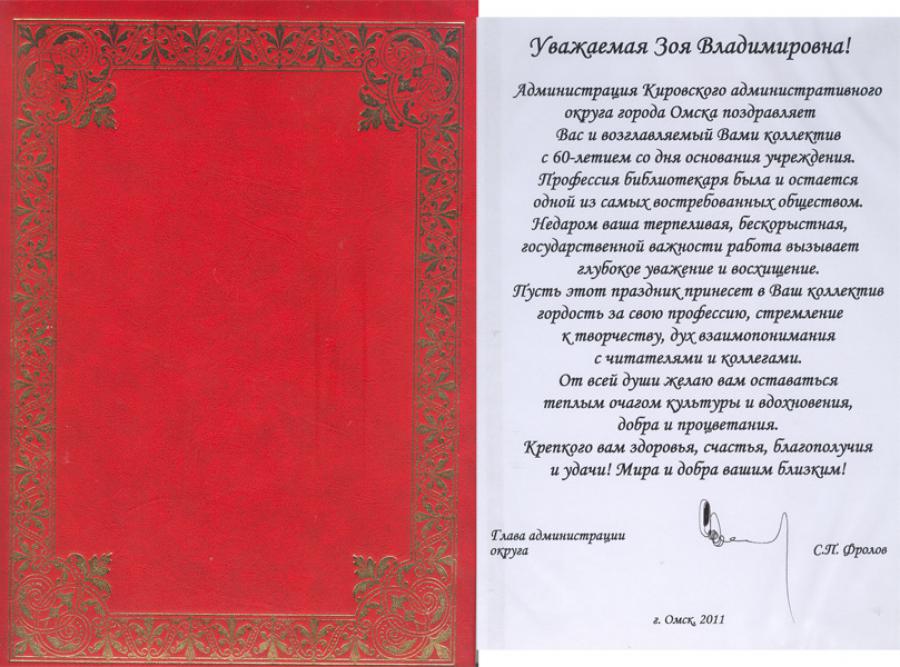 Уважаемая Зоя Владимировна!
Администрация Кировского административного
округа города Омска поздравляет
Вас и возглавляемый Вами коллектив
с 60-летием со дня основания учреждения.
Профессия библиотекаря была и остается
одной из самых востребованных обществом.
Недаром ваша терпеливая, бескорыстная,
государственной важности работа вызывает
глубокое уважение и восхищение.
Пусть этот праздник принесет в Ваш коллектив
гордость за свою профессию, стремление
к творчеству, дух взаимопонимания
с читателями и коллегами.
От всей души желаю вам оставаться
теплым очагом культуры и вдохновения,
добра и процветания.
Крепкого вам здоровья, счастья, благополучия
и удачи! Мира и добра вашим близким!
Глава администрации
округа
С.П. Фролов
г. Омск, 2011